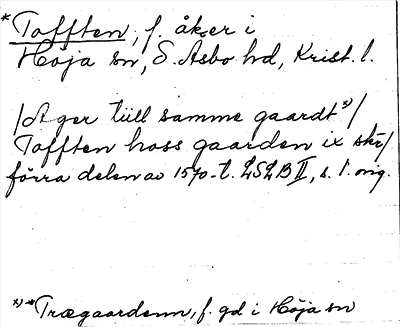 *Tofften, f. åker i
Höja sn, S. Åsbo hd, Krist. l.
/Ager tüll samme gaardt *)/
Tofften hoss gaarden ix skr/
förra delen av 1570-t. LSLB II, s. 1. orig.
*) *Trægaardenn, f. gd i Höja sn